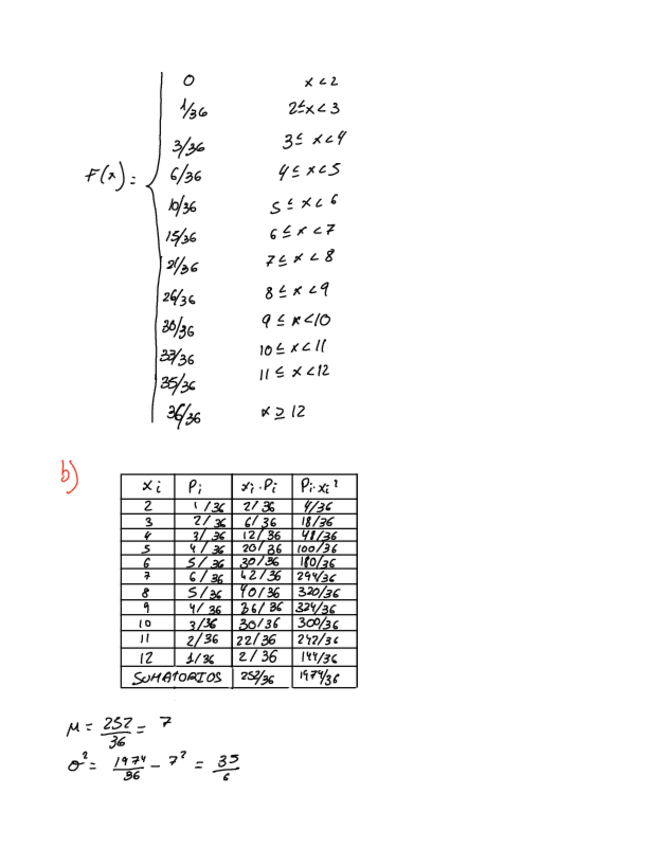 0 x < 2
1/36 2 ≤ x < 3
3/36 3 ≤ x < 4
F(x) = 6/36 4 ≤ x < 5
10/36 5 ≤ x < 6
15/36 6 ≤ x < 7
21/36 7 ≤ x < 8
26/36 8 ≤ x < 9
30/36 9 ≤ x < 10
33/36 10 ≤ x < 11
35/36 11 ≤ x < 12
36/36 x ≥ 12
b)
xi Pi xi·Pi Pi·xi²
2 1/36 2/36 4/36
3 2/36 6/36 18/36
4 3/36 12/36 48/36
5 4/36 20/36 100/36
6 5/36 30/36 180/36
7 6/36 42/36 294/36
8 5/36 40/36 320/36
9 4/36 36/36 324/36
10 3/36 30/36 300/36
11 2/36 22/36 242/36
12 1/36 2/36 144/36
SUMATORIOS 252/36 1974/36
μ = 252/36 = 7
σ² = 1974/36 - 7² = 35/6